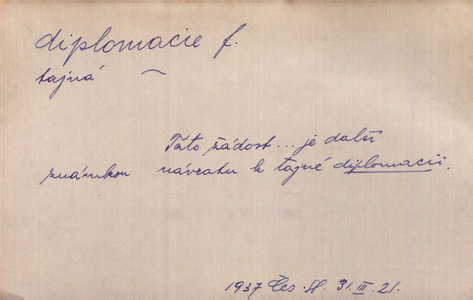 diplomacie f.
tajná ~
Tato žádost... je další
známkou návratu k tajné diplomacii.
1937 Čes. sl. 31. III. 21.